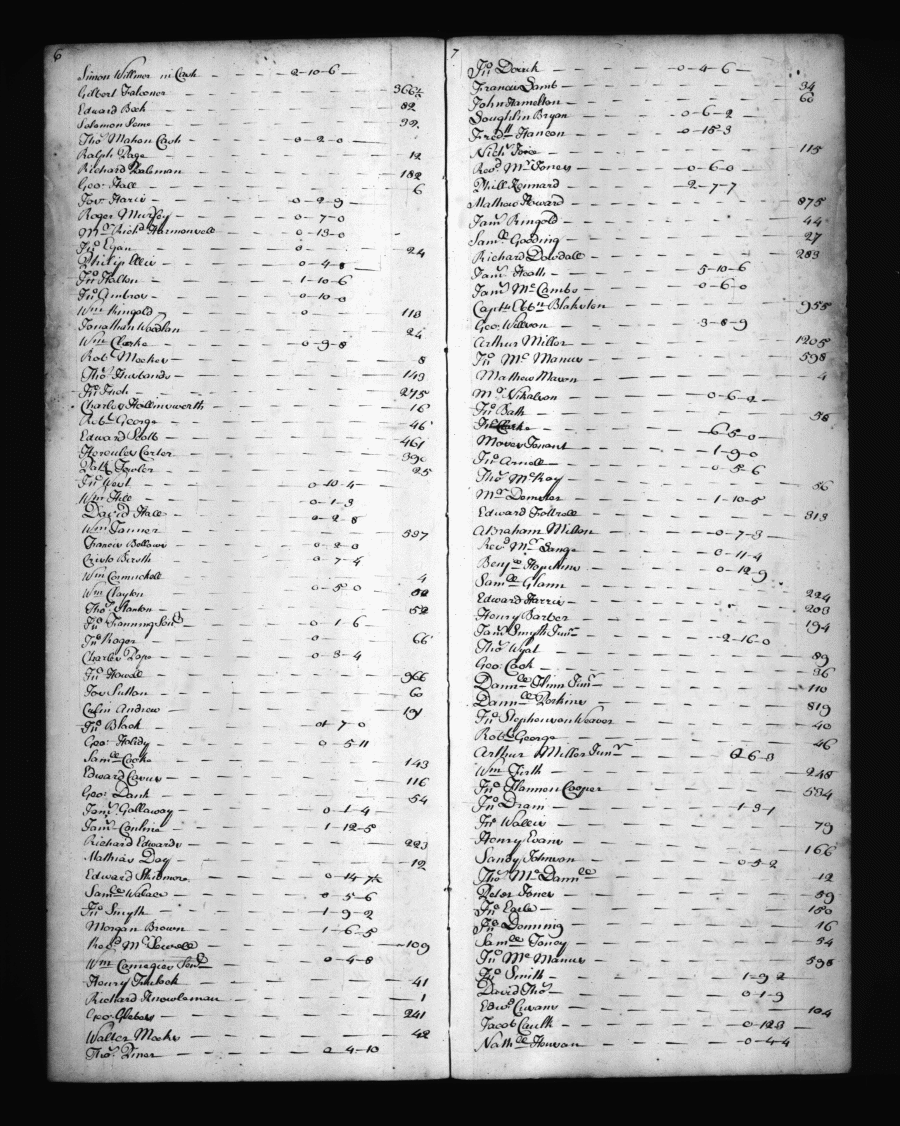 6
Simon Willmor in Cash 2-10-6
Gilbert Falconer 366½
Edward Beck 82
Solomon Seme 32
Tho.s Mahon Cash 0-2-0
Ralph Page 12
Richard Kaleman 182
Geo: Hall 6
Jos. Haris 0-2-9
Roger Murfey 0-7-0
Mr. Rich.d Harmonvell 0-13-0
Jno Egan 0 24
Philip Ellis 0-4-8
Jno Halton 1-10-6
Jno Ambros 0-10-0
Wm Ringold 0 118
Jonathan Woodlan 24
Wm Clarke 0-9-8
Rob.t Meeker 8
Tho.s Husbands 143
Jno Inch 275
Charles Hollinsworth 16
Rob.t George 46
Edward Scott 461
Hercules Carter 390
Patk Fowler 25
Jno West 0-10-4
Wm Hill 0-1-3
David Hall 0-2-8
Wm Tanner 537
Francis Bellows 0-2-0
Cristo Beroth 0-7-4
Wm Cormichell 4
Wm Clayton 0-5-0 82
Tho.s Hanton 52
Jno Fanning Senr 0-1-6
Jno Roger 0 66
Charles Pope 0-3-4
Jno Howell 966
Jos Sutton 60
Culin Andrew 101
Jno Black 01 7-0
Geo: Halidy 0 5-11
Samll Cooke 143
Edward Carus 116
Geo: Dark 54
Jam.s Gallaway 0-1-4
Jam.s Conline 1-12-5
Richard Edwards 223
Mathias Day 12
Edward Skidmore 0-14-7½
Samll Walace 0 5-6
Jno Smyth 1-9-2
Morgan Brown 1-6-5
Revd. Mr Sewell 109
Wm Carnegies Senr 0-4-8
Henry Trulock 41
Richard Knowleman 1
Geo: Glebers 241
Walter Meeks 42
Tho.s Piner 2 4-10
7
Jno Derick 0-4-6
Francis Lamb 34
John Hamelton 60
Soughlin Bryan 0-6-2
Fredk Hanson 0-15-3
Nich.s Joice 115
Revd. Mr. Jones 0-6-0
Phill Kennard 2-7-7
Mathew Howard 875
Jam.s Ringold 44
Samll Gooding 27
Richard Dowdall 283
Jam.s Heath 5-10-6
Jam.s McCambs 0-6-0
Captn Ebbn Blakston 955
Geo: Wilson 3-8-9
Arthur Miller 1205
Jno McManus 598
Mathew Mason 4
Mr Nikalson 0-6-2
Jno Bath 58
Jno Clarke 6-5-0
Moses Tenant 1-9-0
Jno Arnell 0-5-6
Tho.s McKay 56
Mr Demster 1-10-5
Edward Cottrell 313
Abraham Millon 0-7-3
Revd. Mr Lange 0-11-4
Benja Hopkins 0-12-9
Samll Glann
Edward Harris 224
Henry Barber 203
Jam.s Smyth Junr 194
Tho.s Wyat 2-16-0
Geo: Cook 89
Danll Flinn Junr 36
Danll Perkins 110
Jno Stephenson Weaver 819
Rob.t George 40
Arthur Miller Junr 46
Wm Firth 2 6-3
Jno Hannon Cooper 248
Jno Dram 584
Jno Wallis 1-3-1
Henry Evans 79
Sandy Johnson 166
Tho.s McDannll 0-5-2
Peter Jones 12
Jno Earle 89
Jno Denning 150
Samll Toney 16
Jno McManus 54
Jno Smith 598
David Tho.s 1-9 2
Edwd. Cuvans 0-1-9
Jacob Caulk 104
Nathll Henson 0-12 3
0-4-4